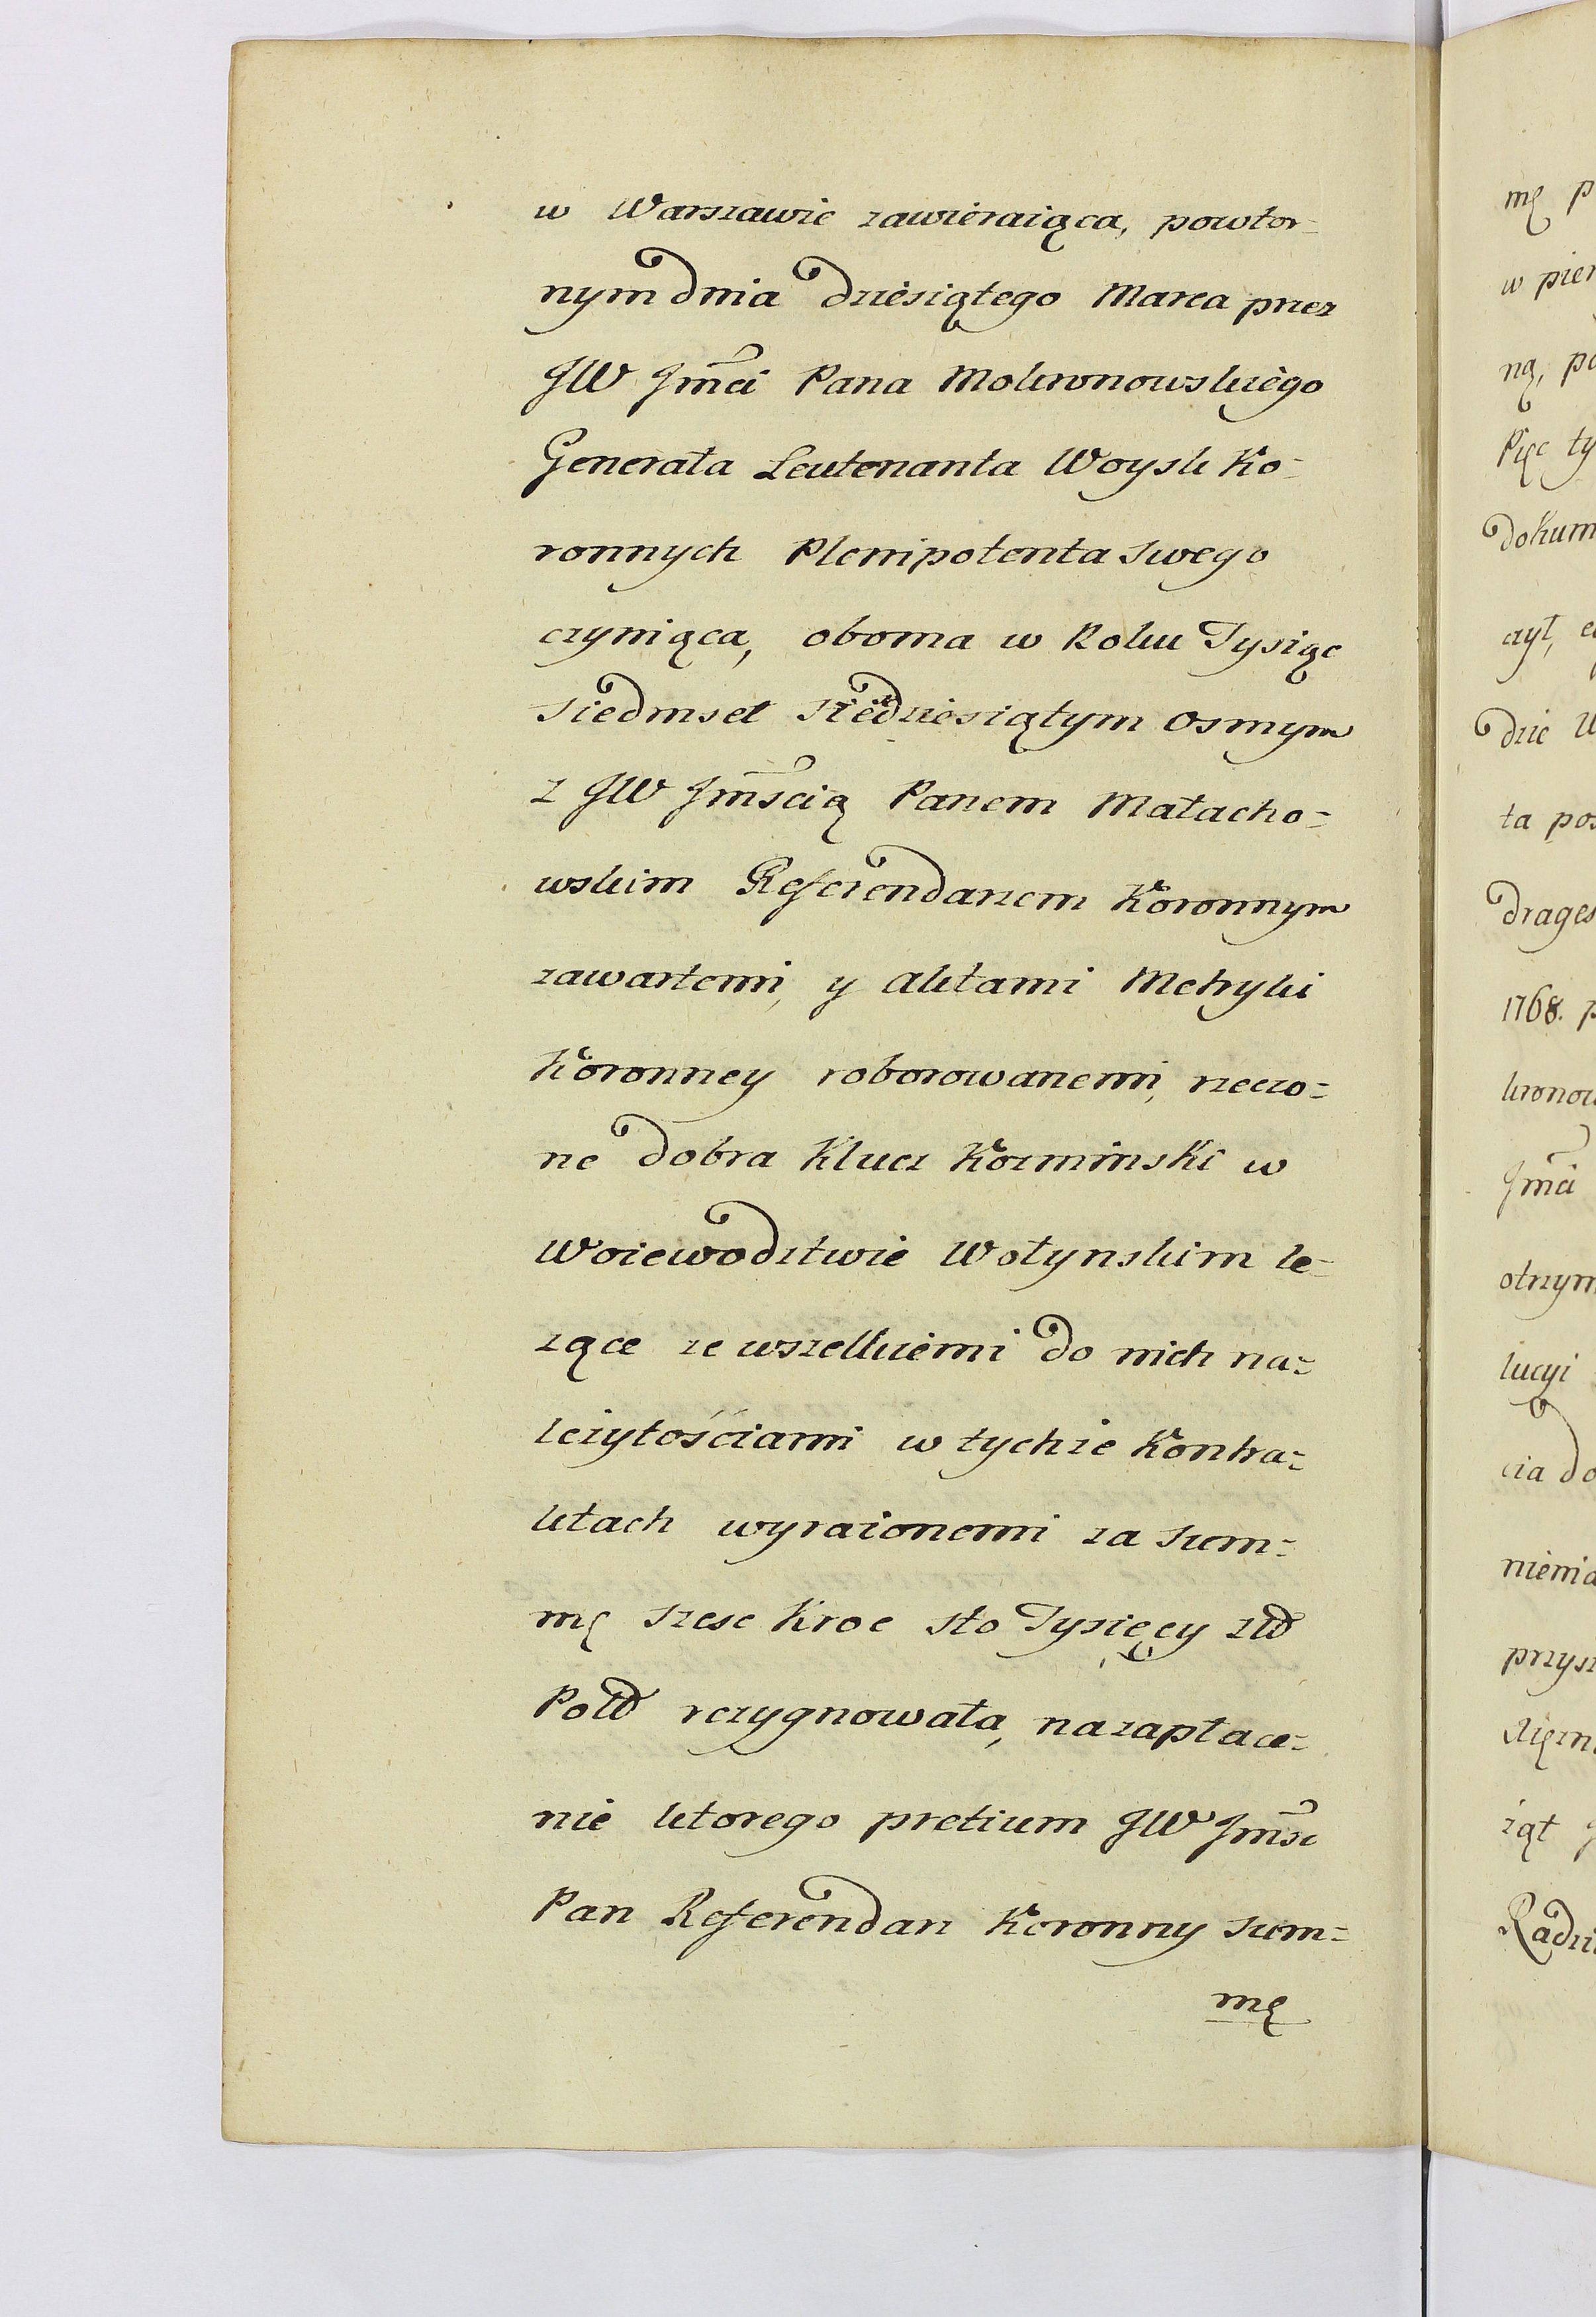 w Warszawie zawieraiąca, powtor=
nym dnia dziesiątego Marca przez
JW Jmci Pana Mokronowskiego
Generała Leutenanta Woysk Ko=
ronnych Plenipotenta swego
czyniąca, oboma w Roku Tysiąc
siedmset siedziesiątym osmym
z JW Jmścią Panem Małacho=
wskim Referendarzem Koronnym
zawartemi, y aktami Metryki
Koronney roborowanemi, rzeczo=
ne dobra Klucz Kozminski w
Woiewodztwie Wołynskim le=
zące ze wszelkiemi do nich na=
leżytościami w tychże Kontra=
ktach wyrażonemi za sum=
mę szesc Kroc sto Tysięcy złł
Poll rezygnowała, na zapłace=
nie ktorego pretium JW Jmsc
Pan Referendarz Koronny sum=
mę
mę p
w pier
ną, po
Pięc ty
dokum
czył,
dzie W
ta pos
drages
1768. p
kronow
Jmci
otrzym
lucyi
cia do
nienia
przysz
ząt J
Radzi